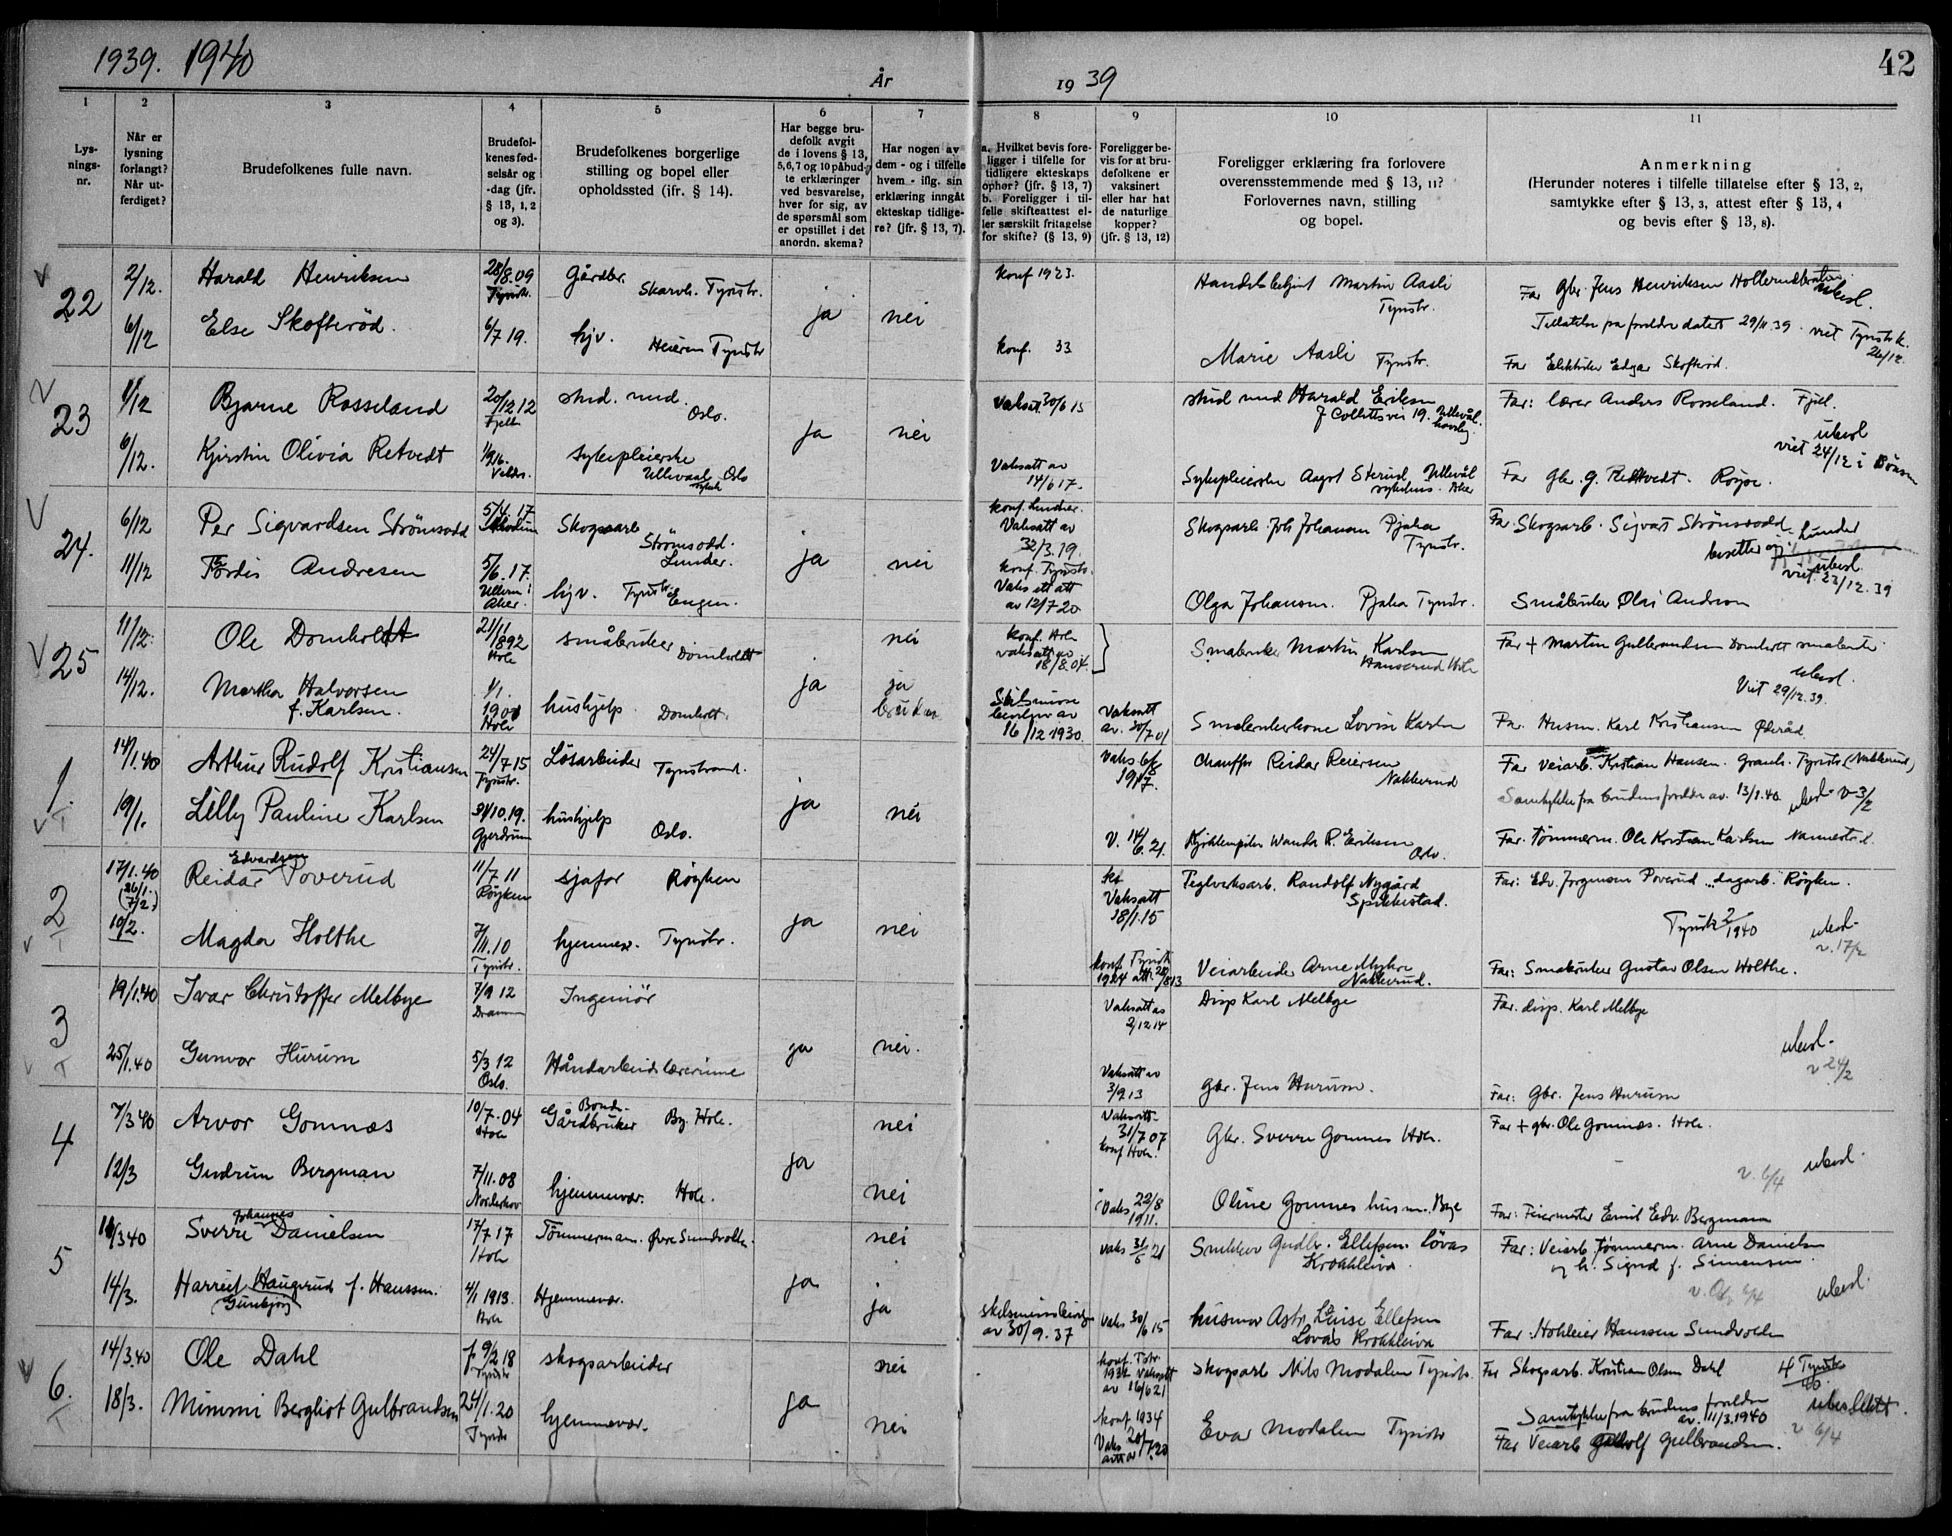 1939. 1940
År
19 39
42
1
Lys-
nings-
nr.
2
Når er
lysning
forlangt?
Når ut-
ferdiget?
3
Brudefolkenes fulle navn.
4
Brudefol-
kenes fød-
selsår og
-dag (jfr.
§ 13, 1, 2
og 3).
5
Brudefolkenes borgerlige
stilling og bopel eller
opholdssted (jfr. § 14).
6
Har begge bru-
defolk avgit
de i lovens § 13,
5,6,7 og 10 påbud-
te erklæringer
ved besvarelse,
hver for sig, av
de spørsmål som
er opstillet i det
anordn. skema?
7
Har nogen av
dem - og i tilfelle
hvem - iflg. sin
erklæring inngått
ekteskap tidlige-
re? (jfr. § 13, 7).
8
a. Hvilket bevis fore-
ligger i tilfelle for
tidligere ekteskaps
ophør? (jfr. § 13, 7)
b. Foreligger i til-
felle skifteattest el-
ler særskilt fritagelse
for skifte? (§ 13, 9)
9
Foreligger be-
vis for at bru-
defolkene er
vaksinert
eller har hat
de naturlige
kopper?
(jfr. § 13, 12)
10
Foreligger erklæring fra forlovere
overensstemmende med § 13, 11?
Forlovernes navn, stilling
og bopel.
11
Anmerkning
(Herunder noteres i tilfelle tillatelse efter § 13, 2,
samtykke efter § 13, 3, attest efter § 13, 4
og bevis efter § 13, 8).
22
2/12. Harald Henriksen 28/8.09 Tyristr. Gårdbr. Skarvh. Tyristr. ja nei konf 1923. Martin Aasli Tyristr. Far Gbr. Jens Henriksen
Tillatelse fra foreldre datert 29/11.39. viet Tyristr. k. 26/12.
6/12 Else Skofterød. 6/7 19. hjv. Tyristr konf. 33 Marie Aasli Tyristr. Far Edgar Skofterød.
23
1/12 Bjarne Rosseland 20/12 12 Fjell stud. med. Oslo. ja nei Vaksat. 30/6 15 stud med Harald Eriksen J Colletts vei 19. Ullevål haveby. Far: lærer Anders Rosseland. Fjell.
ubesl viet 24/12 i
6/12. Kjirstin Olivia Retvedt sykepleierske Ullevaal sykeh Oslo Vaksatt av 14/6 17. Sykepleierske Ullevål sykehus. Far Gbr. G. Retvedt.
24.
6/12 Per Sigvardsen Strømsodd 5/4.17 Skogsarb Strømsodd. Lunder. ja nei konf. Lunder. Vaksatt av Skogsarb. Joh Johansen Pjaka Tyristr. Far Skogsarb. Sigvart Strømsodd Lunder
ubesl. viet. 23/12.39
11/12 Tordis Andresen 5/6.17. Ullern i Aker. hjv. Tyristr Engen. konf. Tyristr. Vaks att av 12/7 20 Olga Johansen. Pjaka Tyristr. Småbruker
25
11/12. Ole Domholdt 21/11 892 Hole småbruker Domholdt nei konf. Hole vaksatt av 18/8.04. Småbruker Martin Karlsen Hole Far + Martin Gulbrandsen Domholt småbruker
ubesl. Viet 29/12.39.
14/12. Martha Halvorsen f. Karlsen. 1/1. 1901 Hole hushjelp Domholt. ja ja bruden 16/12 1930 Vaksatt av. 30/7 01 Lovise Karlsen Far. Husm. Karl Kristiansen
1.
T
14/1.40 Arthur Rudolf Kristiansen 24/7 15 Tyristr. Løsarbeider Tyristrand. ja nei Vaks 6/8 1917. Chauffør Reidar Reiersen Nakkerud Far Veiarb. Kristian Hansen. Tyristr (Nakkerud)
Samtykke fra brudens foreldre av. 13/1.40 ubesl- v 3/2
19/1. Lilly Pauline Karlsen 31/10.19. Gjerdrum hushjelp Oslo. V. 14/6.21. Wanda R. Eriksen Oslo. Far. Tømmerm. Ole Kristian Karlsen Nannestad.
2
T
17/1.40 (26/1. 7/2.) Reidar Edvardsen Poverud 11/7 11 Røyken sjafør Røyken ja nei Vaksatt 18/1.15 Teglverksarb. Randolf Nygård Spikkestad. Far: Edv. Jorgensen Poverud dagarb. Røyken.
Tyristr 2/1940 ubesl- v. 17/2
10/2. Magda Holthe 7/11.10 Tyristr. hjemmev. Tyristr. konf Tyristr 1924 Veiarbeider Arne Myhre Nakkerud. Far: Småbruker Gustav Olsen Holthe.
3
T
19/1.40 Ivar Christoffer Melbye 7/9 12 Drammen Ingeniør ja nei. Vaksatt av 2/12 14 Disp Karl Melbye Far. disp. Karl Melbye
ubesl- v 24/2
25/1.40 Gunvor Hurum 5/3 12 Oslo. Håndarbeidslærerinne Vaksatt av 3/9 13 Gbr. Jens Hurum. Far: Gbr. Jens Hurum
4
7/3 40 Arvor Gomnæs 10/7-04 Hole Bonde- Gårdbruker By. Hole. ja nei Vaksatt- 31/7 07 konf Hole. Gbr. Sverre Gomnes Hole. Far + gbr. Ole Gomnæs. Hole.
v. 6/4 ubesl-
12/3 Gudrun Bergman 7/11.08 Norderhov hjemmevær. Hole. nei Vaks 22/8 1911. Oline Gomnes husm. Bye Far: Feiermester Emil Edv. Bergmann
5
11/3 40 Sverre Johannes Danielsen 17/7 17 Hole Tømmermann. Øvre Sundvolle. nei vaks 31/5 21 Snekker Gudbr. Ellefsen. Løvås Krokkleiva. Far: Veiarb tømmerm. Arne Danielsen og h. Signe f. Simensen
ubesl-
14/3. Harriet Gunbjørg Haugerud f. Hanssen. 4/1 1913. Hole Hjemmevær. ja ja av 30/9.37 Vaks 30/6 15 husmor Ellefsen Løvås Krokkleiva Far: Hotleier Hanssen Sundvolden
6.
T
14/3.40 Ole Dahl f 9/2 18 Tyristr skogsarbeider ja nei konf. Tstr. 1932 Vaksatt av 16/6 21 skogsarb Nils Modalen Tyristr. Far Skogsarb. Kristian Olsen Dahl 4 Tyristr 40
Samtykke fra brudens foreldre av. 11/3.1940 ubeslektet. v 6/4
18/3. Mimmi Bergliot Gulbrandsen 24/1.20 Tyristr hjemmevær. nei konf. 1934 Vaks Eva Modalen Tyristr Far Veiarb Gulbrandsen.